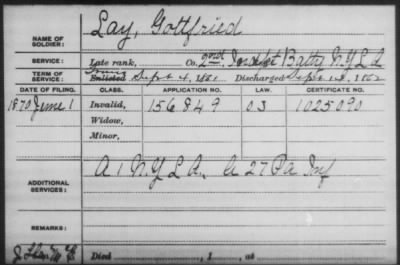 NAME OF SOLDIER: Lay, Gottfried
SERVICE: Late rank, Co. 2nd Ind Batty N.Y. L A
TERM OF SERVICE: Enlisted Sept 4, 1861 Discharged Sept 13, 1862
DATE OF FILING. CLASS. APPLICATION NO. LAW. CERTIFICATE NO.
1870 June 1 Invalid, 156849 03 1025090
Widow,
Minor,
ADDITIONAL SERVICES: A 1 N.Y. L A. C 27 Pa Inf
REMARKS:
Died , 1 , at